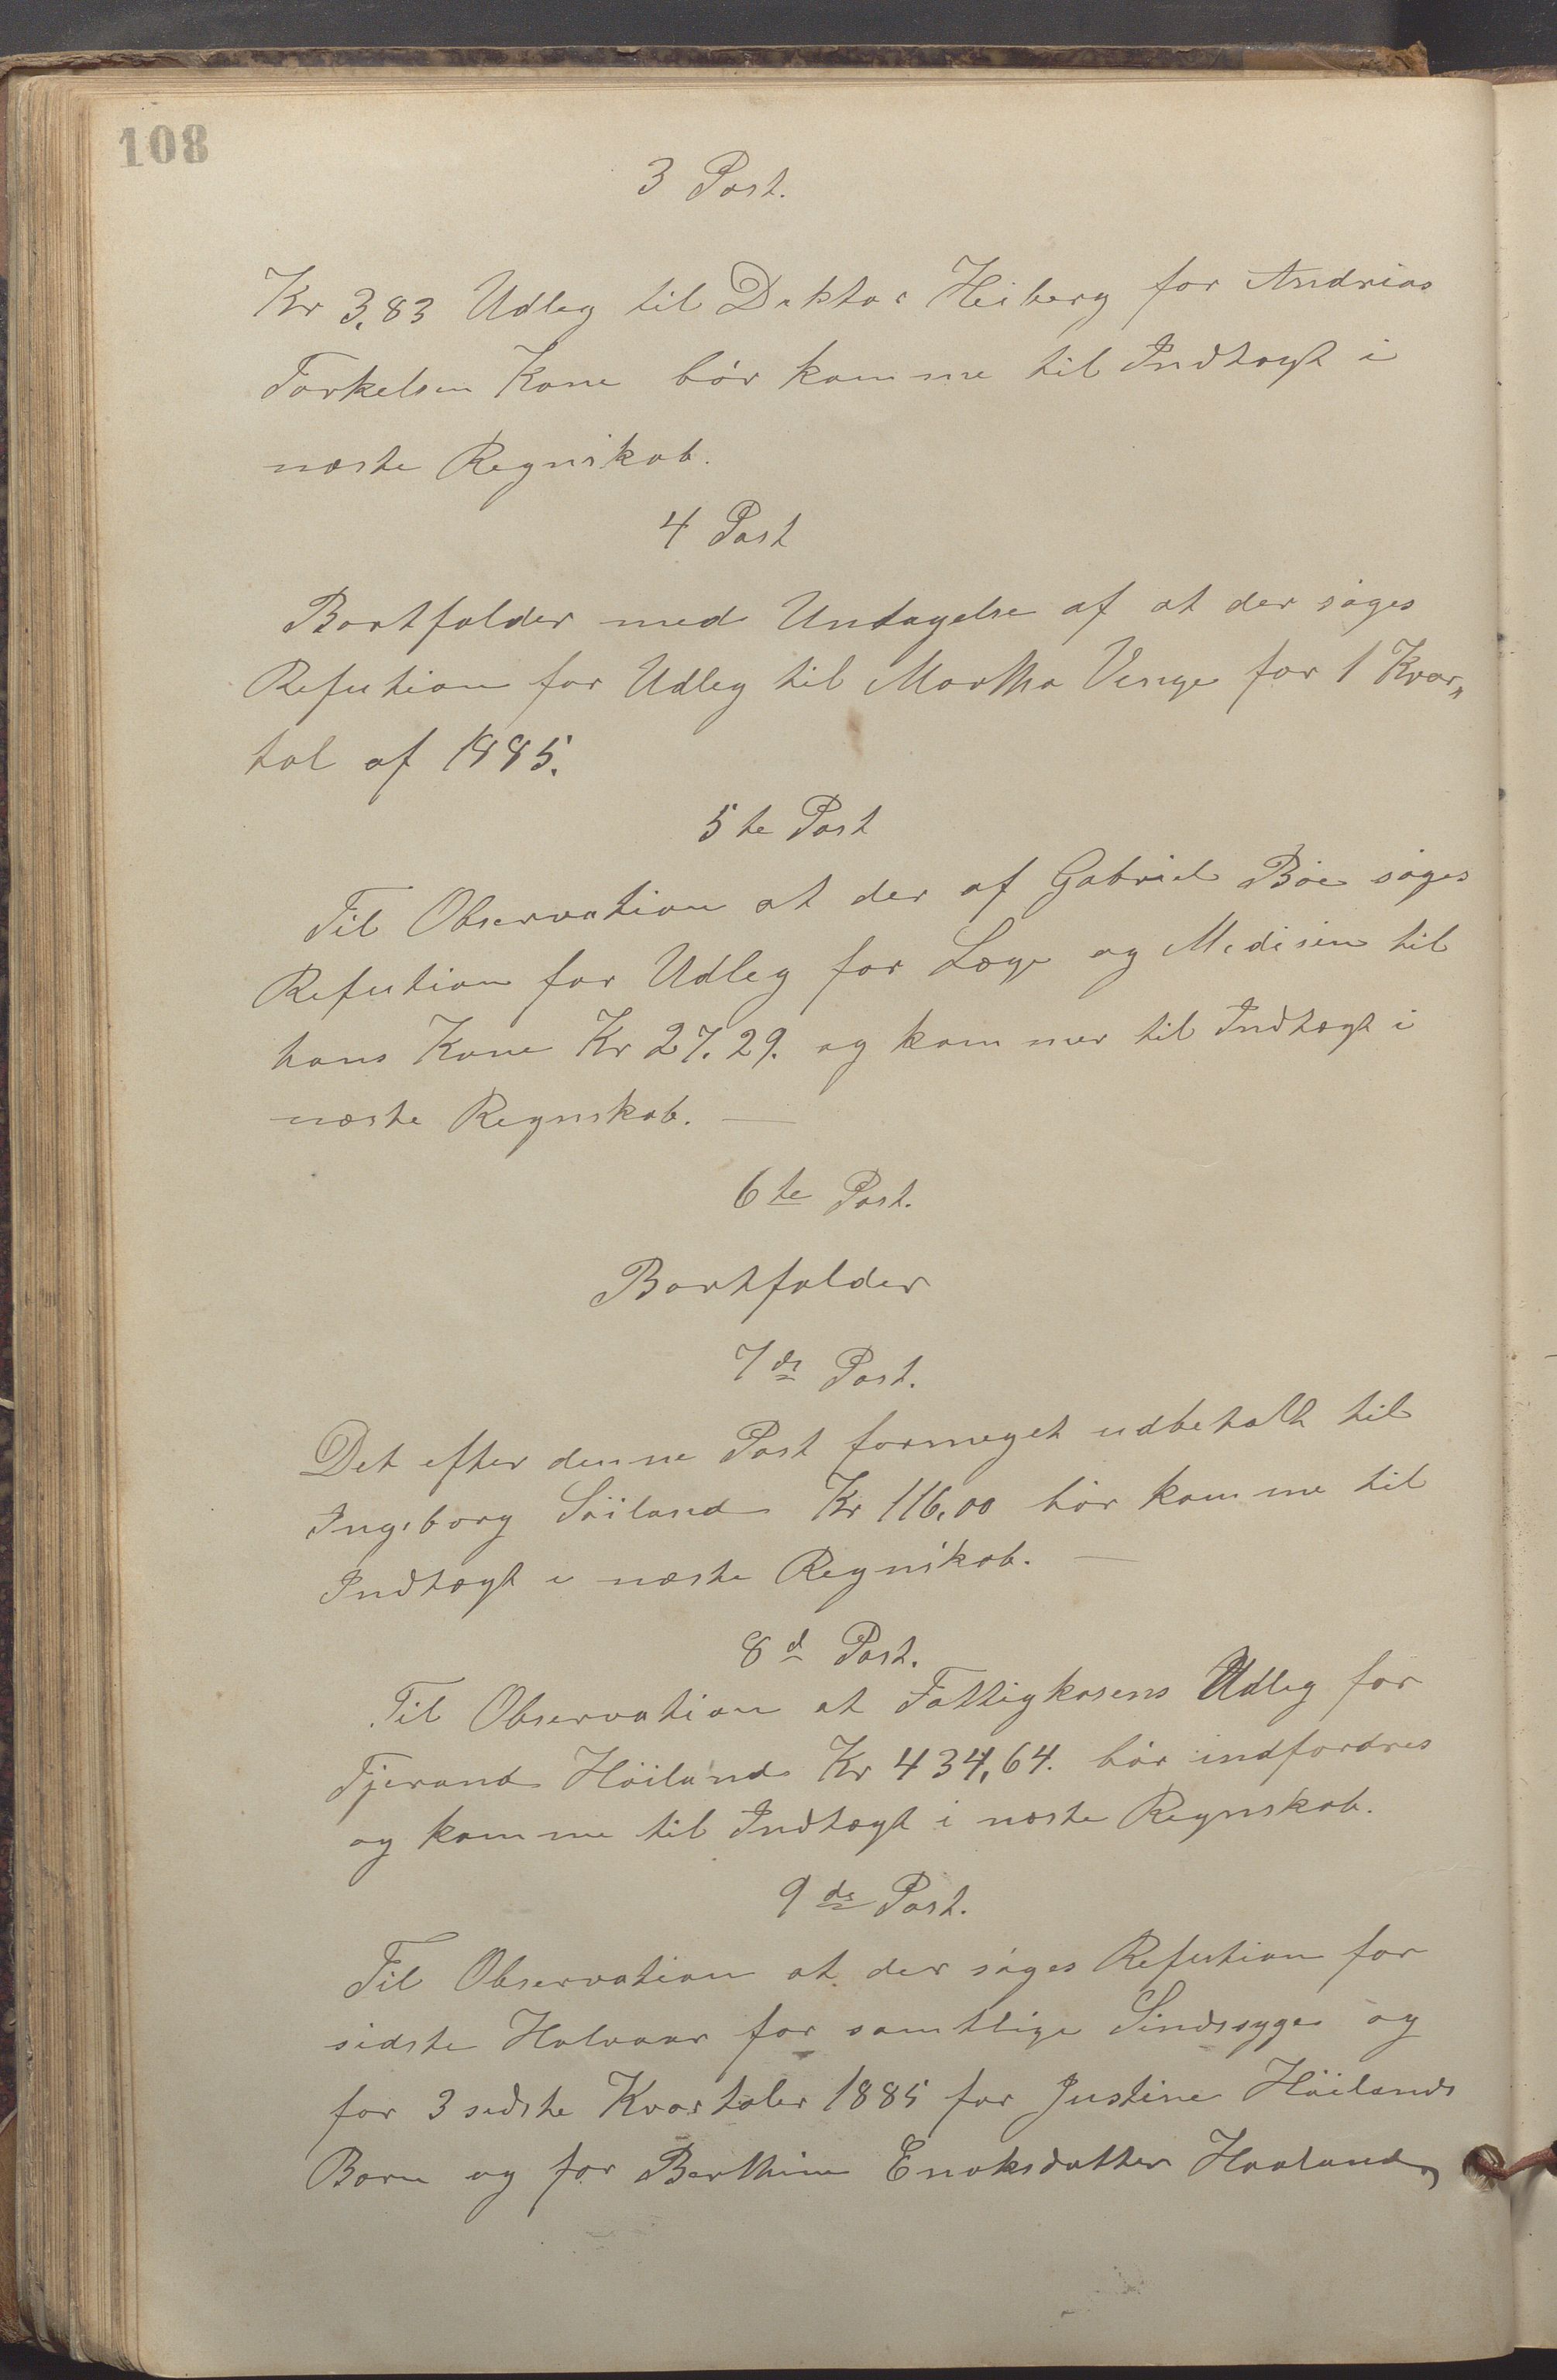 108
3 Post.
Kr 3,83 Udleg til Doktor Heiberg for Andreas
Torkelsen Kone bör komme til Indtægt i
næste Regnskab.
4 Post
Bortfalder med Undtagelse af at der söges
Refution for Udleg til Martha Venge for 1 Kvar„
tal af 1885.
5te Post
Til Observation at der af Gabriel Böe söges
Refution for Udleg for Læge og Medisin til
hans Kone Kr 27.29. og kommer til Indtægt i
næste Regnskab. —
6te Post.
Bortfalder
7de Post.
Det efter denne Post formeget udbetalt til
Ingeborg Söiland Kr 116,00 bör komme til
Indtægt i næste Regnskab. —
8d Post.
Til Observation at Fattigkasens Udleg for
Tjerand Höiland Kr 434,64. bör indfordres
og komme til Indtægt i næste Regnskab.
9de Post.
Til Observation at der söges Refution for
sidste Halvaar for samtlige Sindssyge og
for 3 sidste Kvartaler 1885 for Justine Höilands
Børn og for Berthine Enoksdatter Haaland,